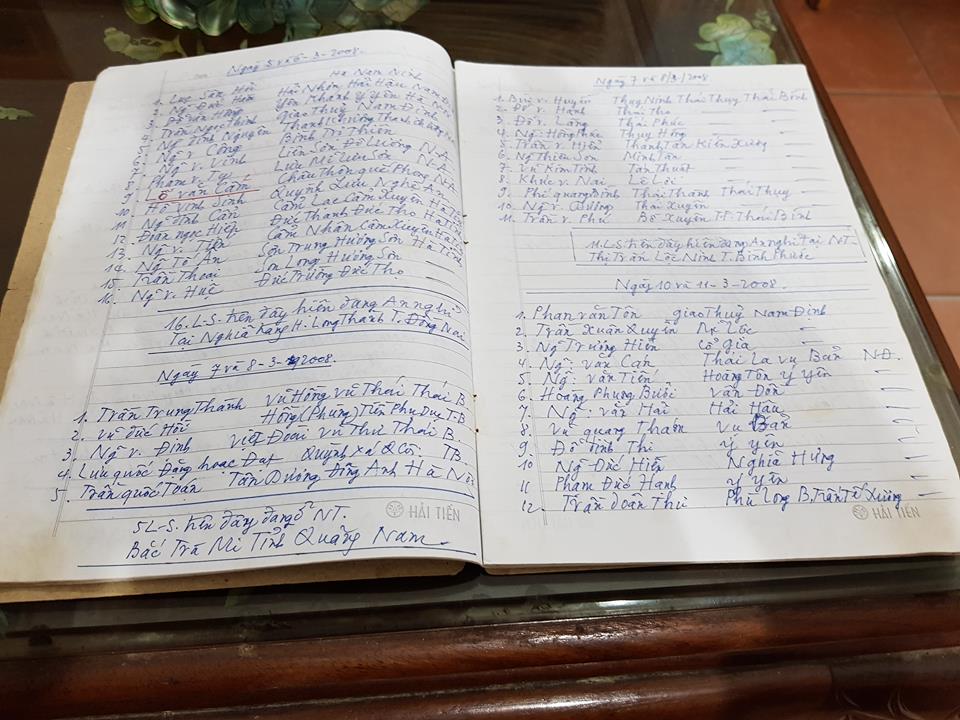 Ngày 5 và 6-3-2008.
Hà Nam Ninh
1. Hải Nhân Hải Hậu
2. Ng Đức Hiền Yên Khánh Ý Yên Hà
3. Đỗ Văn Hồng Giao Thuỷ Nam Định
4. Trần Ngọc Thinh Thanh
5. Ng Đình Nguyên Bình Trị Thiên
6. Ng v. Công Liên Sơn Đô Lương N.A
7. Ng v. Vinh Lưu Sơn N.A
8. Phạm v. Tại Châu Thôn quế Phong N.A
9. Lô Văn Cắm Quỳnh Lưu Nghệ A.
10 Hồ Vĩnh Sinh Cẩm Lạc Cẩm Xuyên Hà T
11 Ng Tinh Cần Đức Thanh Đức Thọ Hà Tĩnh
12. Điân Ngọc Hiệp Cẩm Nhân Cẩm Xuyên Hà Tĩnh
13. Ng v. Tiến Sơn Trung Hương Sơn Hà Tĩnh
14. Ng Tố Ân Sơn Long Hương Sơn
15. Trần Thoại Đức Trường Đức Thọ
16. Ngô v. Huệ
16. L.S. trên đây hiện đang An nghỉ
Tại Nghĩa trang H. Long Thành T. Đồng Nai
Ngày 7 và 8-3-2008.
1. Trần Trung Thành Vũ Hồng Vũ Thư Thái B
2. Vũ Đức Hối Hồng (Phung) Tiến Phu Duc TB
3. Ng v. Định Việt Đoàn Vũ Thư Thái B.
4. Lưu quốc Đặng hoặc Đạt Quỳnh xá Q Côi. TB.
5. Trần quốc Toán Tân Dương Đông Anh Hà Nội
5 L-S. trên đây đang ở NT.
Bắc Trà Mi Tỉnh Quảng Nam
HẢI TIẾN
Ngày 7 và 8/3/2008
1. Bùi v. Huyên Thụy Ninh Thái Thụy Thái Bình
2. Đỗ v. Hạnh Thái Thọ —
3. Đỗ v. Lương Thái Phúc —
4. Ng. Hồng Phúc Thụy Hồng —
5. Trần v. Hiện Thanh Tân Kiến Xương —
6. Ng Thiều Sơn Minh Tân —
7. Vũ Kim Tinh Tán Thuật —
8. Khúc v. Nai Lê Lợi —
9. Phí quang Định Thái Thành Thái Thụy —
10. Ng v. Cường Thái Xuyên —
11. Trần v. Phú Bồ Xuyên TP. Thái Bình
11. L-S trên đây hiện đang An nghỉ Tại NT.
Thị Trấn Lộc Ninh T. Bình Phước
Ngày 10 và 11-3-2008.
1. Phan văn Tôn giao Thuỷ Nam Định
2. Trần Xuân Quyên Lộc —
3. Ng Trường Hiền —
4. Ng. văn Cán Vụ Bản NĐ.
5. Ng. văn Tiến Hoàng Tôn ý Yên —
6. Hoàng Phụng Buổi Vân Đồn —
7. Ng. văn Hai Hải Hậu —
8. Vũ quang Thám Vụ Bản —
9. Đỗ Tinh Thi ý yên —
10 Ngô Đức Hiển Nghĩa Hưng —
11 Phạm Đức Hạnh ý yên —
12. Trần doãn Thư Phù Long B. Trần Tế Xương —
HẢI TIẾN